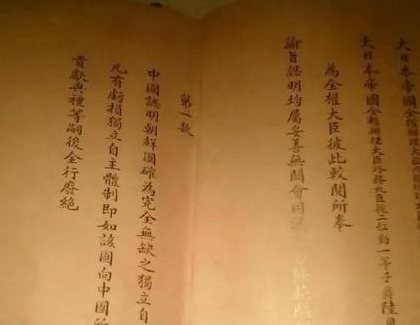 大日本帝國全權辦理大臣
大日本帝國全權辦理大臣外務大臣從二位勳一等子爵陸
為全權大臣彼此較閱所奉
諭旨認明均屬妥善無闕會同議
第一款
中國認明朝鮮國確為完全無缺之獨立自
凡有虧損獨立自主體制即如該國向中國所
貢獻典禮等嗣後全行廢絕